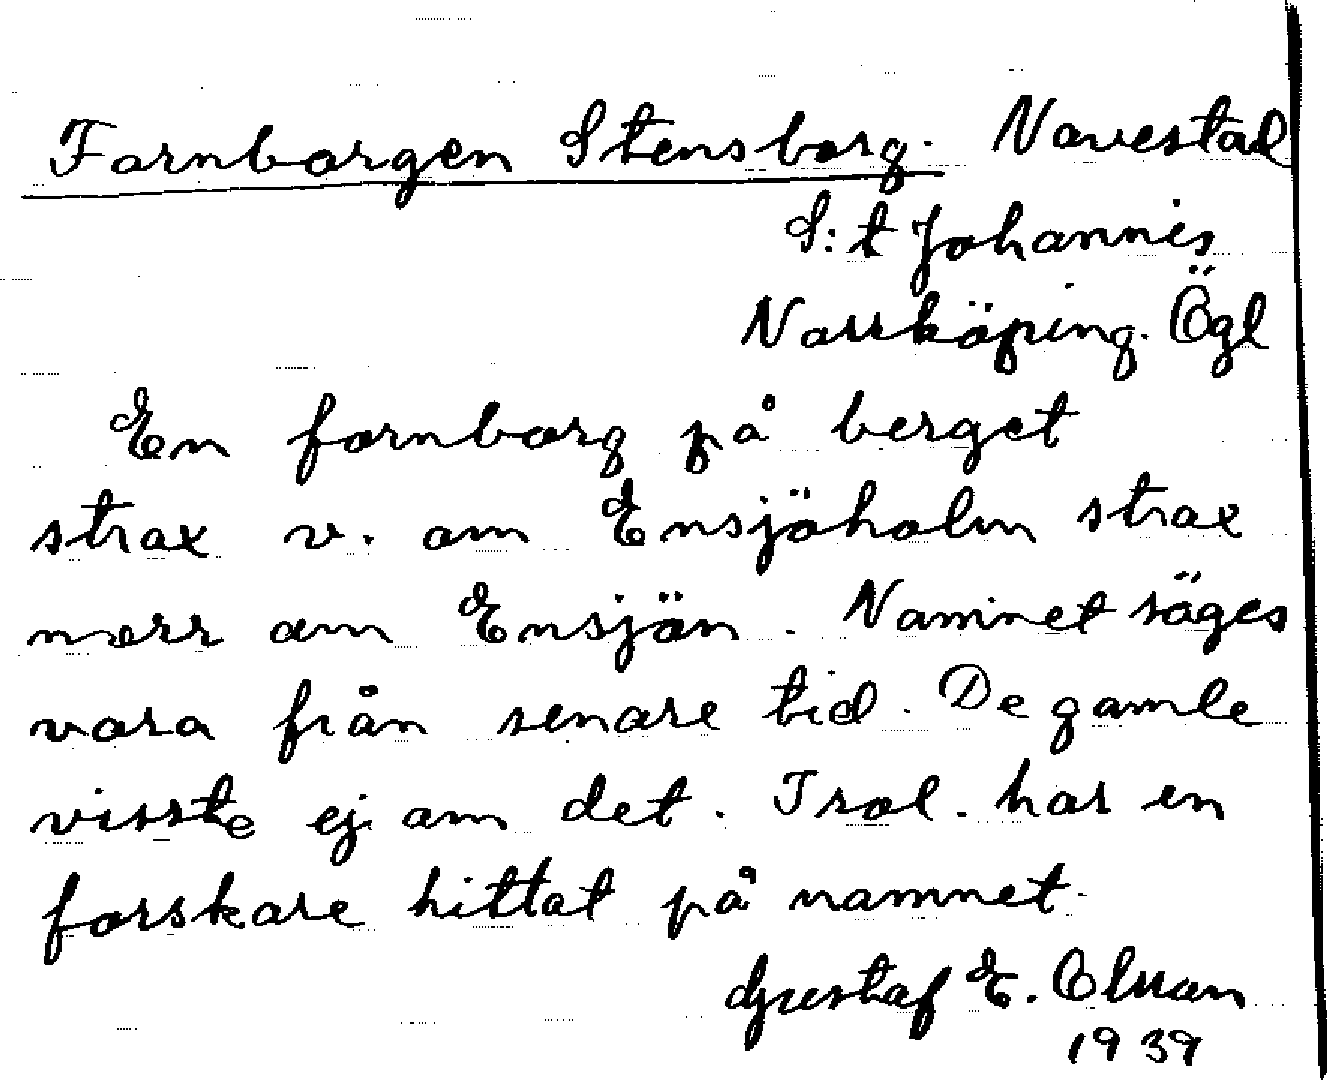 Fornborgen Stensborg. Navestad
S:t Johannis
Norrköping. Ögl
En fornborg på berget
strax v. om Ensjöholm strax
norr om Ensjön. Namnet säges
vara från senare tid. De gamle
visste ej om det. Trol. har en
forskare hittat på namnet.
Gustaf E.
1939